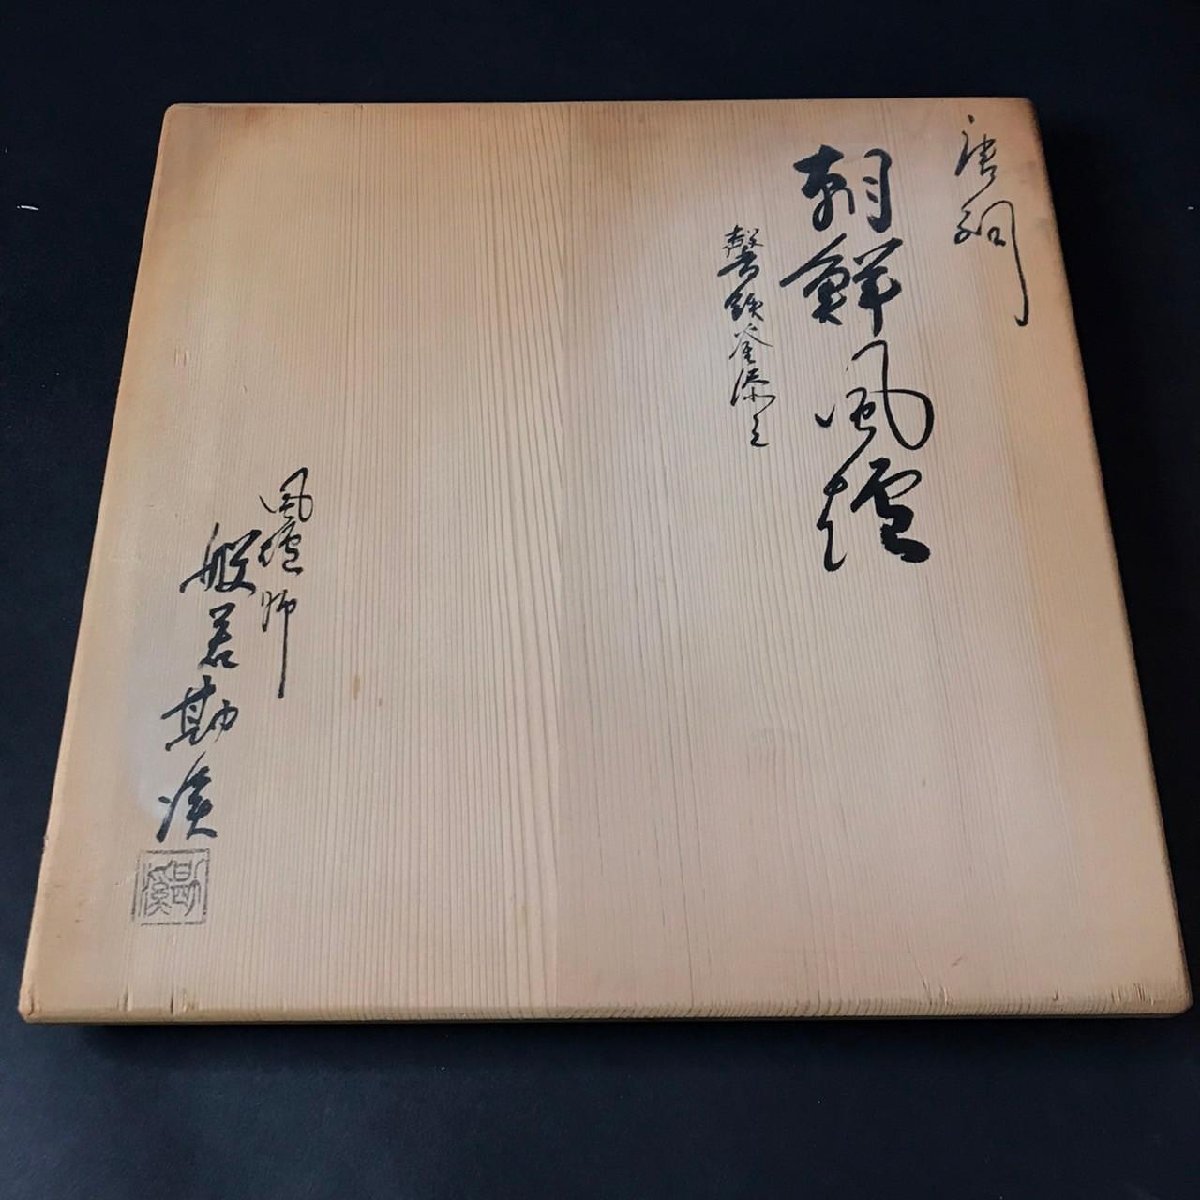 唐銅
朝鮮風爐
鬢鏡釜添之
風爐師
般若勘渓
勘渓